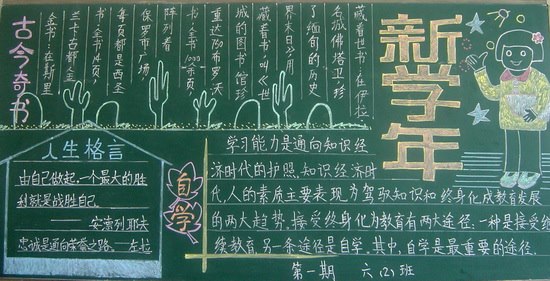 新学年
古今奇书
金书:在斯里
兰卡古都
书,全书14页,
每页都是西圣
保罗市广场
阵列着
书,全书1000余页
重达750布罗沃
城的图书馆珍
藏着书叫《世
界末日》用
了缅甸的历史
名城佛塔卫珍
藏着世书:在伊拉
人生格言
由自己做起,一个最大的胜
利就是战胜自己.
——安索列耶夫
忠诚是通向荣誉之路.——左拉
自学
学习能力是通向知识经
济时代的护照.知识经济时
代,人的素质主要表现为驾驭知识和终身化成教育发展
的两大趋势,接受终身化为教育有两大途径.一种是接受继
续教育,另一条途径是自学.其中,自学是最重要的途径.
第一期 六(2)班